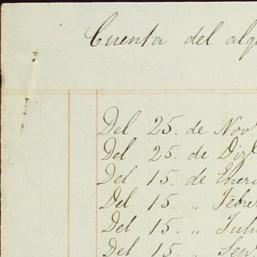 Cuenta del alq
Del 25. de Nov
Del 25. de Dic
Del 15. de Ener
Del 15. " Febre
Del 15. " Juli
Del 15. " Sep